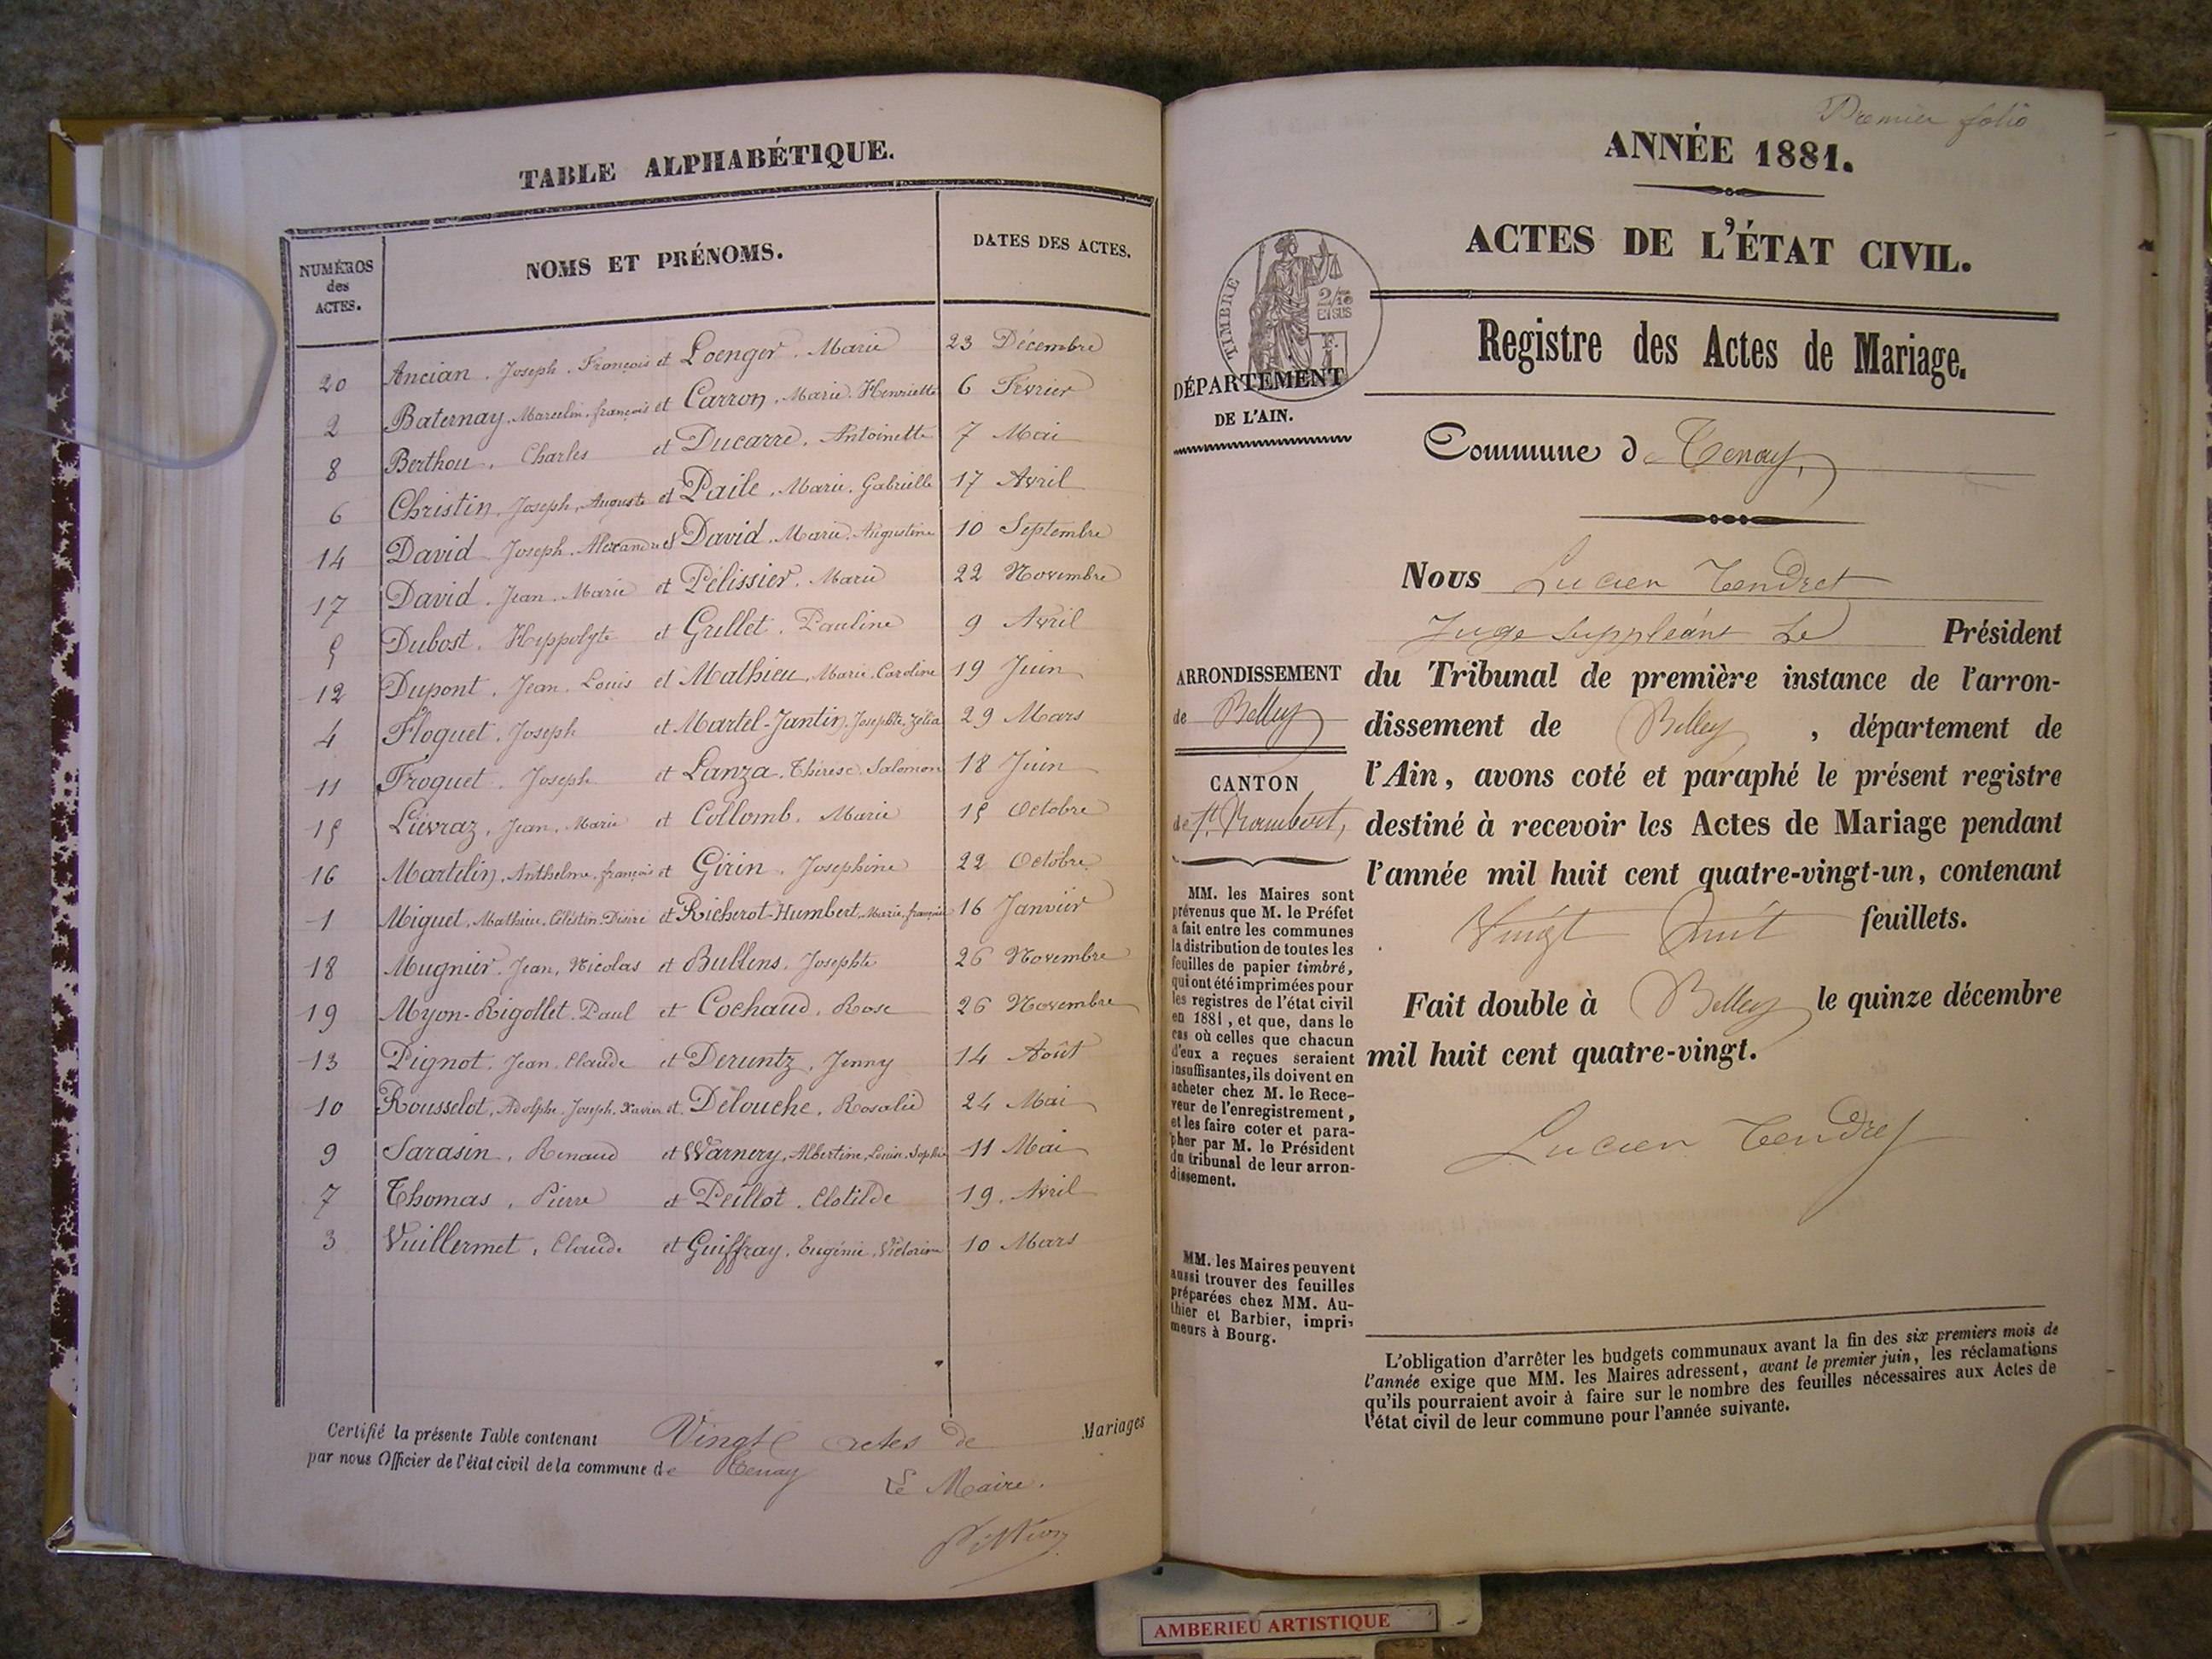 TABLE ALPHABÉTIQUE.
NUMÉROS des ACTES. NOMS ET PRÉNOMS. DATES DES ACTES.
20 Ancian, Joseph, François et Loenger, Marie 23 Décembre
2 Baternay, Marcelin, françois et Carron, Marie, Henriette 6 Février
8 Berthou, Charles et Ducarre, Antoinette 7 Mai
6 Christin, Joseph, Auguste et Paile, Marie, Gabrielle 17 Avril
14 David Joseph Alexandre et David, Marie, Augustine 10 Septembre
17 David, Jean, Marie et Pélissier, Marie 22 Novembre
5 Dubost, Hyppolyte et Grillet, Pauline 9 Avril
12 Dupont, Jean, Louis et Mathieu, Marie, Caroline 19 Juin
4 Floquet, Joseph et Martel-Jantin, Josephte, Zélia 29 Mars
11 Froquet, Joseph et Lanza, Thérèse, Salomon 18 Juin
15 Lièvraz, Jean, Marie et Collomb, Marie 15 Octobre
16 Martelin, Anthelme, françois et Girin, Josephine 22 Octobre
1 Miguet, Mathieu, Célestin, Désiré et Richerot-Humbert, Marie, françoise 16 Janvier
18 Mugnier, Jean, Nicolas et Bullens, Josephte 26 Novembre
19 Myon-Rigollet, Paul et Cochaud, Rose 26 Novembre
13 Pignot, Jean, Claude et Deruntz, Jenny 14 Août
10 Rousselot, Adolphe, Joseph, Xavier et Délouche, Rosalie 24 Mai
9 Sarasin, Renaud et Warnery, Albertine, Louise, Sophie 11 Mai
7 Thomas, Pierre et Peillot, Clotilde 19 Avril
3 Vuillermet, Claude et Guiffray, Eugénie, Victorine 10 Mars
Certifié la présente Table contenant Vingt actes de Mariages
par nous Officier de l'état civil de la commune de Tenay
Le Maire.
Premier folio
ANNÉE 1881.
ACTES DE L'ÉTAT CIVIL.
TIMBRE
2/10 EN SUS
Registre des Actes de Mariage.
DÉPARTEMENT
DE L'AIN.
Commune de Tenay,
Nous Lucien Tendret
Juge suppléant Le Président
du Tribunal de première instance de l'arron-
dissement de Belley, département de
l'Ain, avons coté et paraphé le présent registre
destiné à recevoir les Actes de Mariage pendant
l'année mil huit cent quatre-vingt-un, contenant
Vingt Huit feuillets.
Fait double à Belley le quinze décembre
mil huit cent quatre-vingt.
Lucien Tendret
ARRONDISSEMENT
de Belley
CANTON
de St. Rambert,
MM. les Maires sont
prévenus que M. le Préfet
a fait entre les communes
la distribution de toutes les
feuilles de papier timbré,
qui ont été imprimées pour
les registres de l'état civil
en 1881, et que, dans le
cas où celles que chacun
d'eux a reçues seraient
insuffisantes, ils doivent en
acheter chez M. le Rece-
veur de l'enregistrement,
et les faire coter et para-
pher par M. le Président
du tribunal de leur arron-
dissement.
MM. les Maires peuvent
aussi trouver des feuilles
préparées chez MM. Au-
thier et Barbier, impri-
meurs à Bourg.
L'obligation d'arrêter les budgets communaux avant la fin des six premiers mois de
l'année exige que MM. les Maires adressent, avant le premier juin, les réclamations
qu'ils pourraient avoir à faire sur le nombre des feuilles nécessaires aux Actes de
l'état civil de leur commune pour l'année suivante.
AMBERIEU ARTISTIQUE